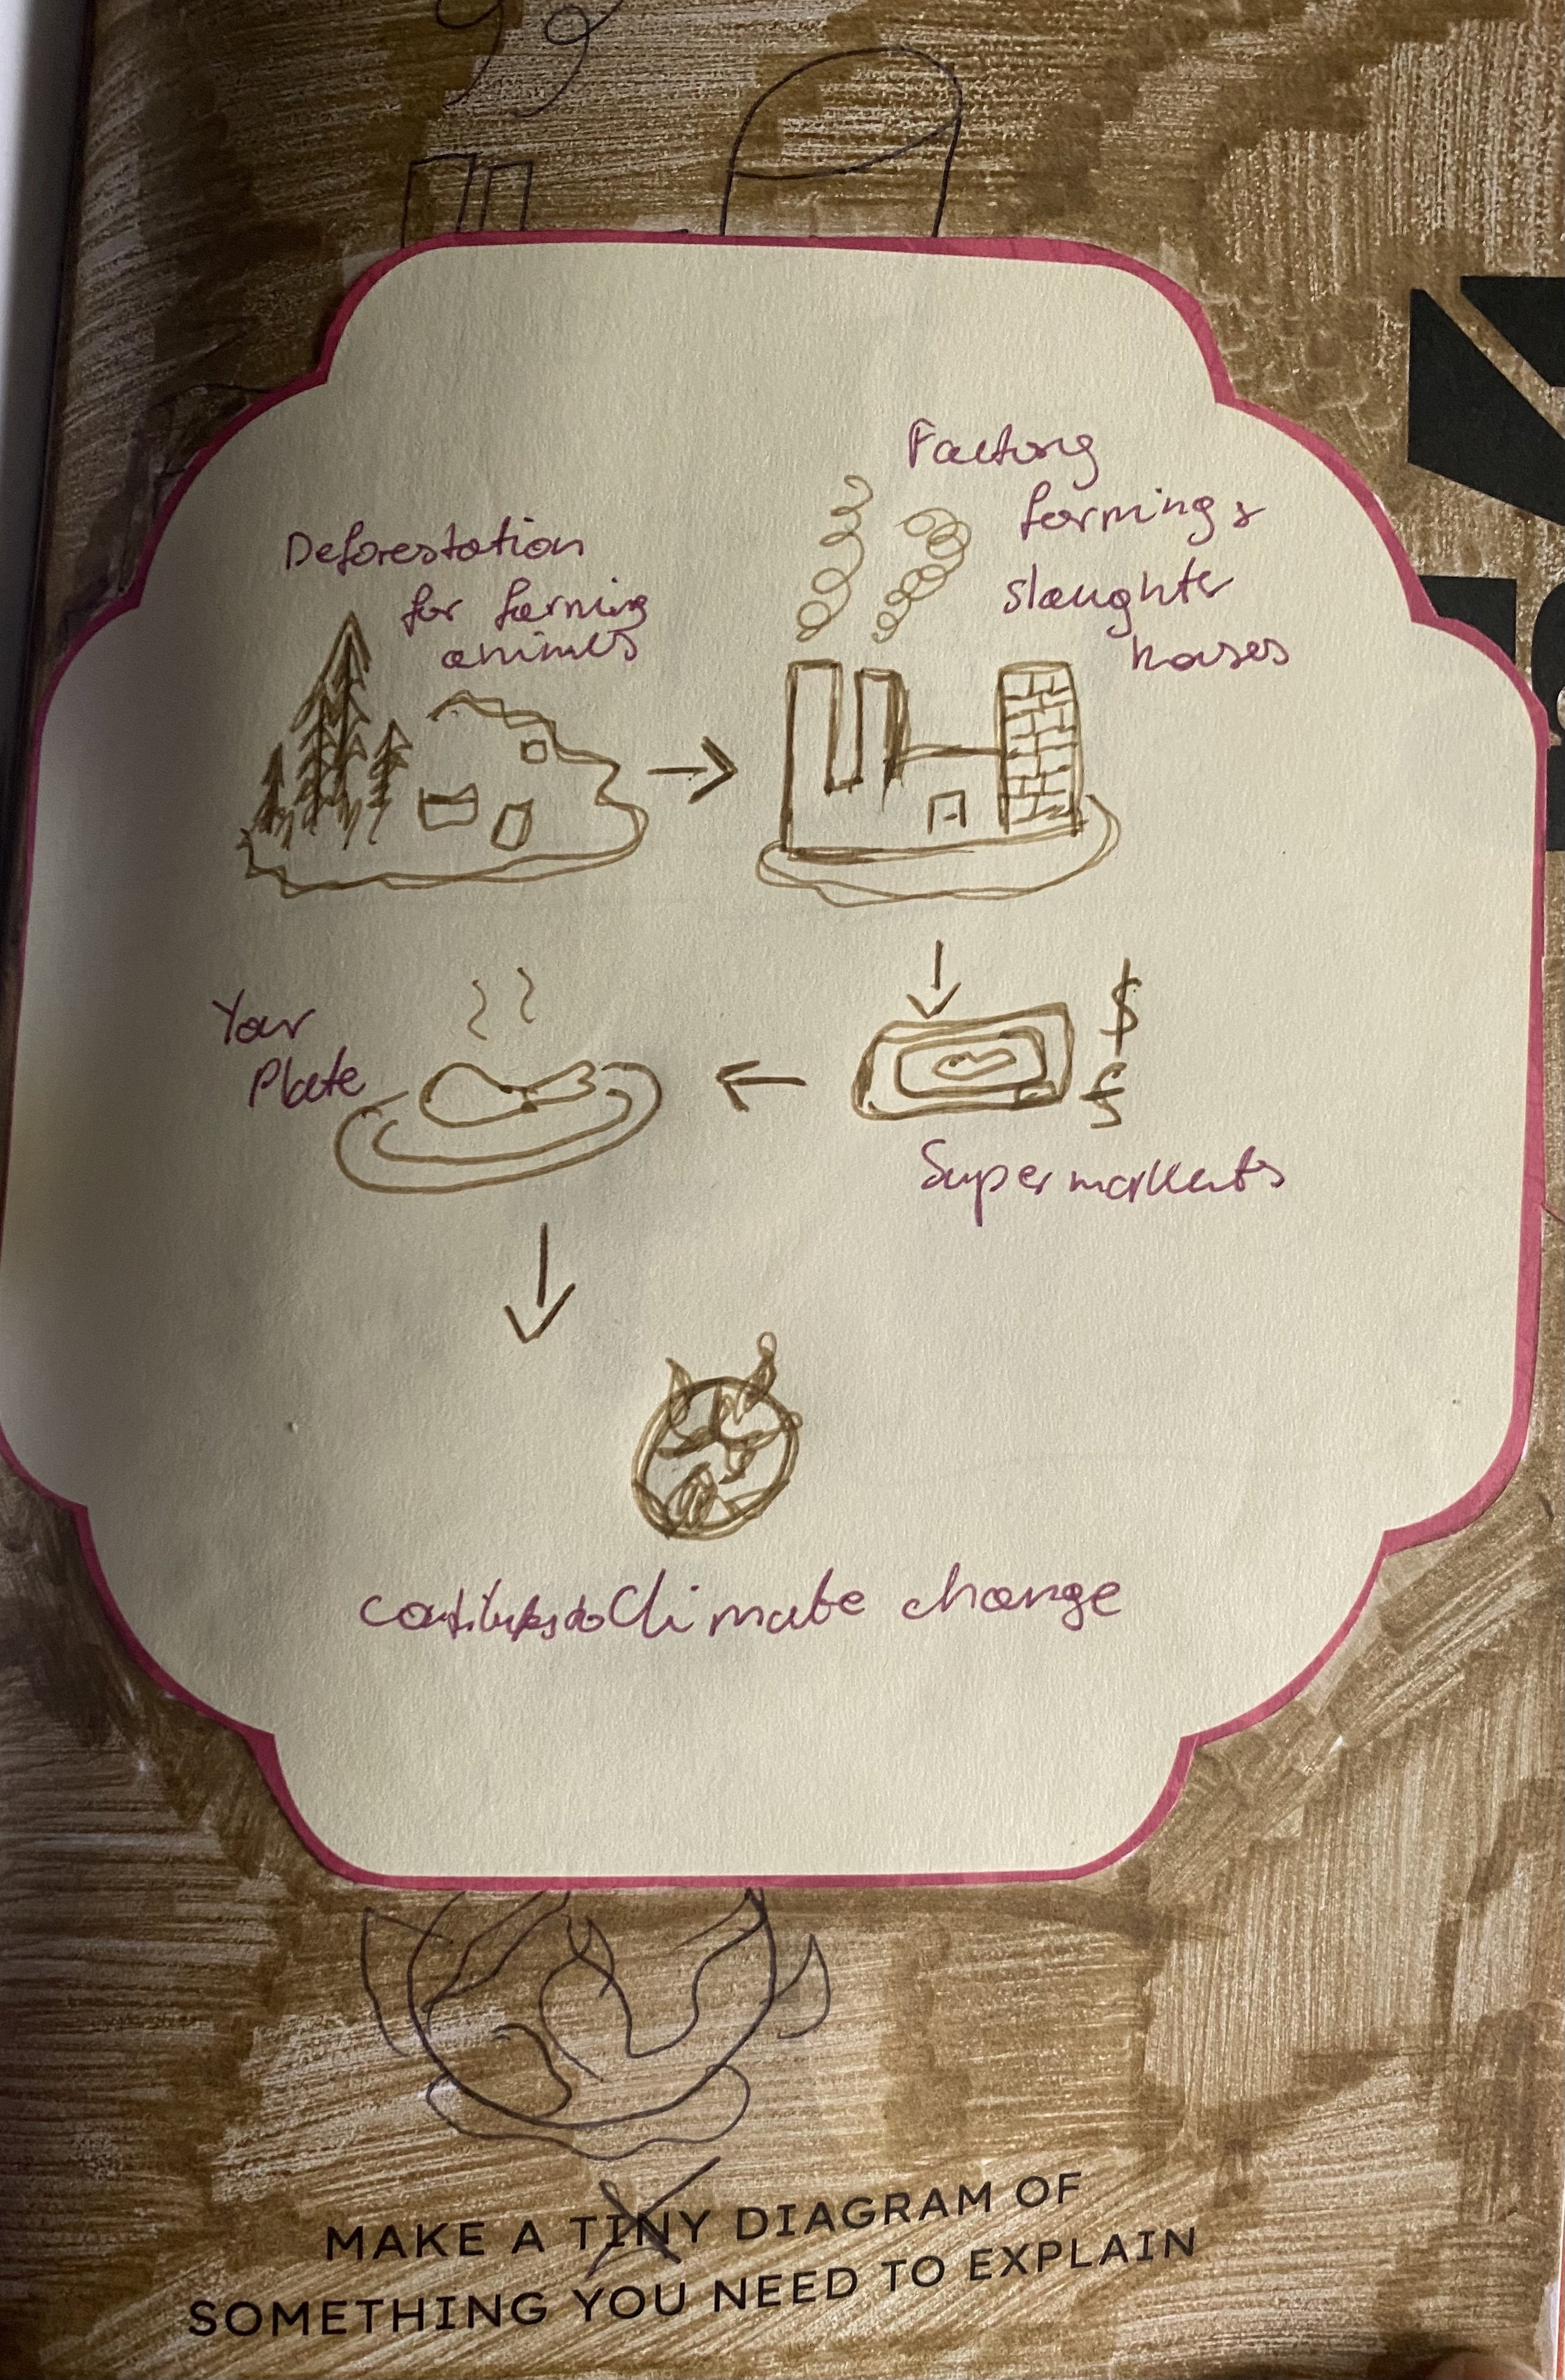 Factory
farming &
slaughter
houses
Deforestation
for farming
animals
Your
Plate
$
£
Supermarkets
contributes to Climate change
MAKE A TINY DIAGRAM OF
SOMETHING YOU NEED TO EXPLAIN